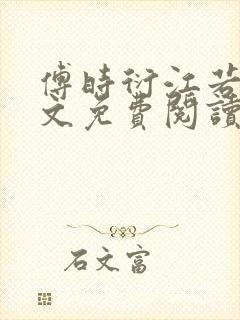 傅时衍江若
文免費閱讀
石文富